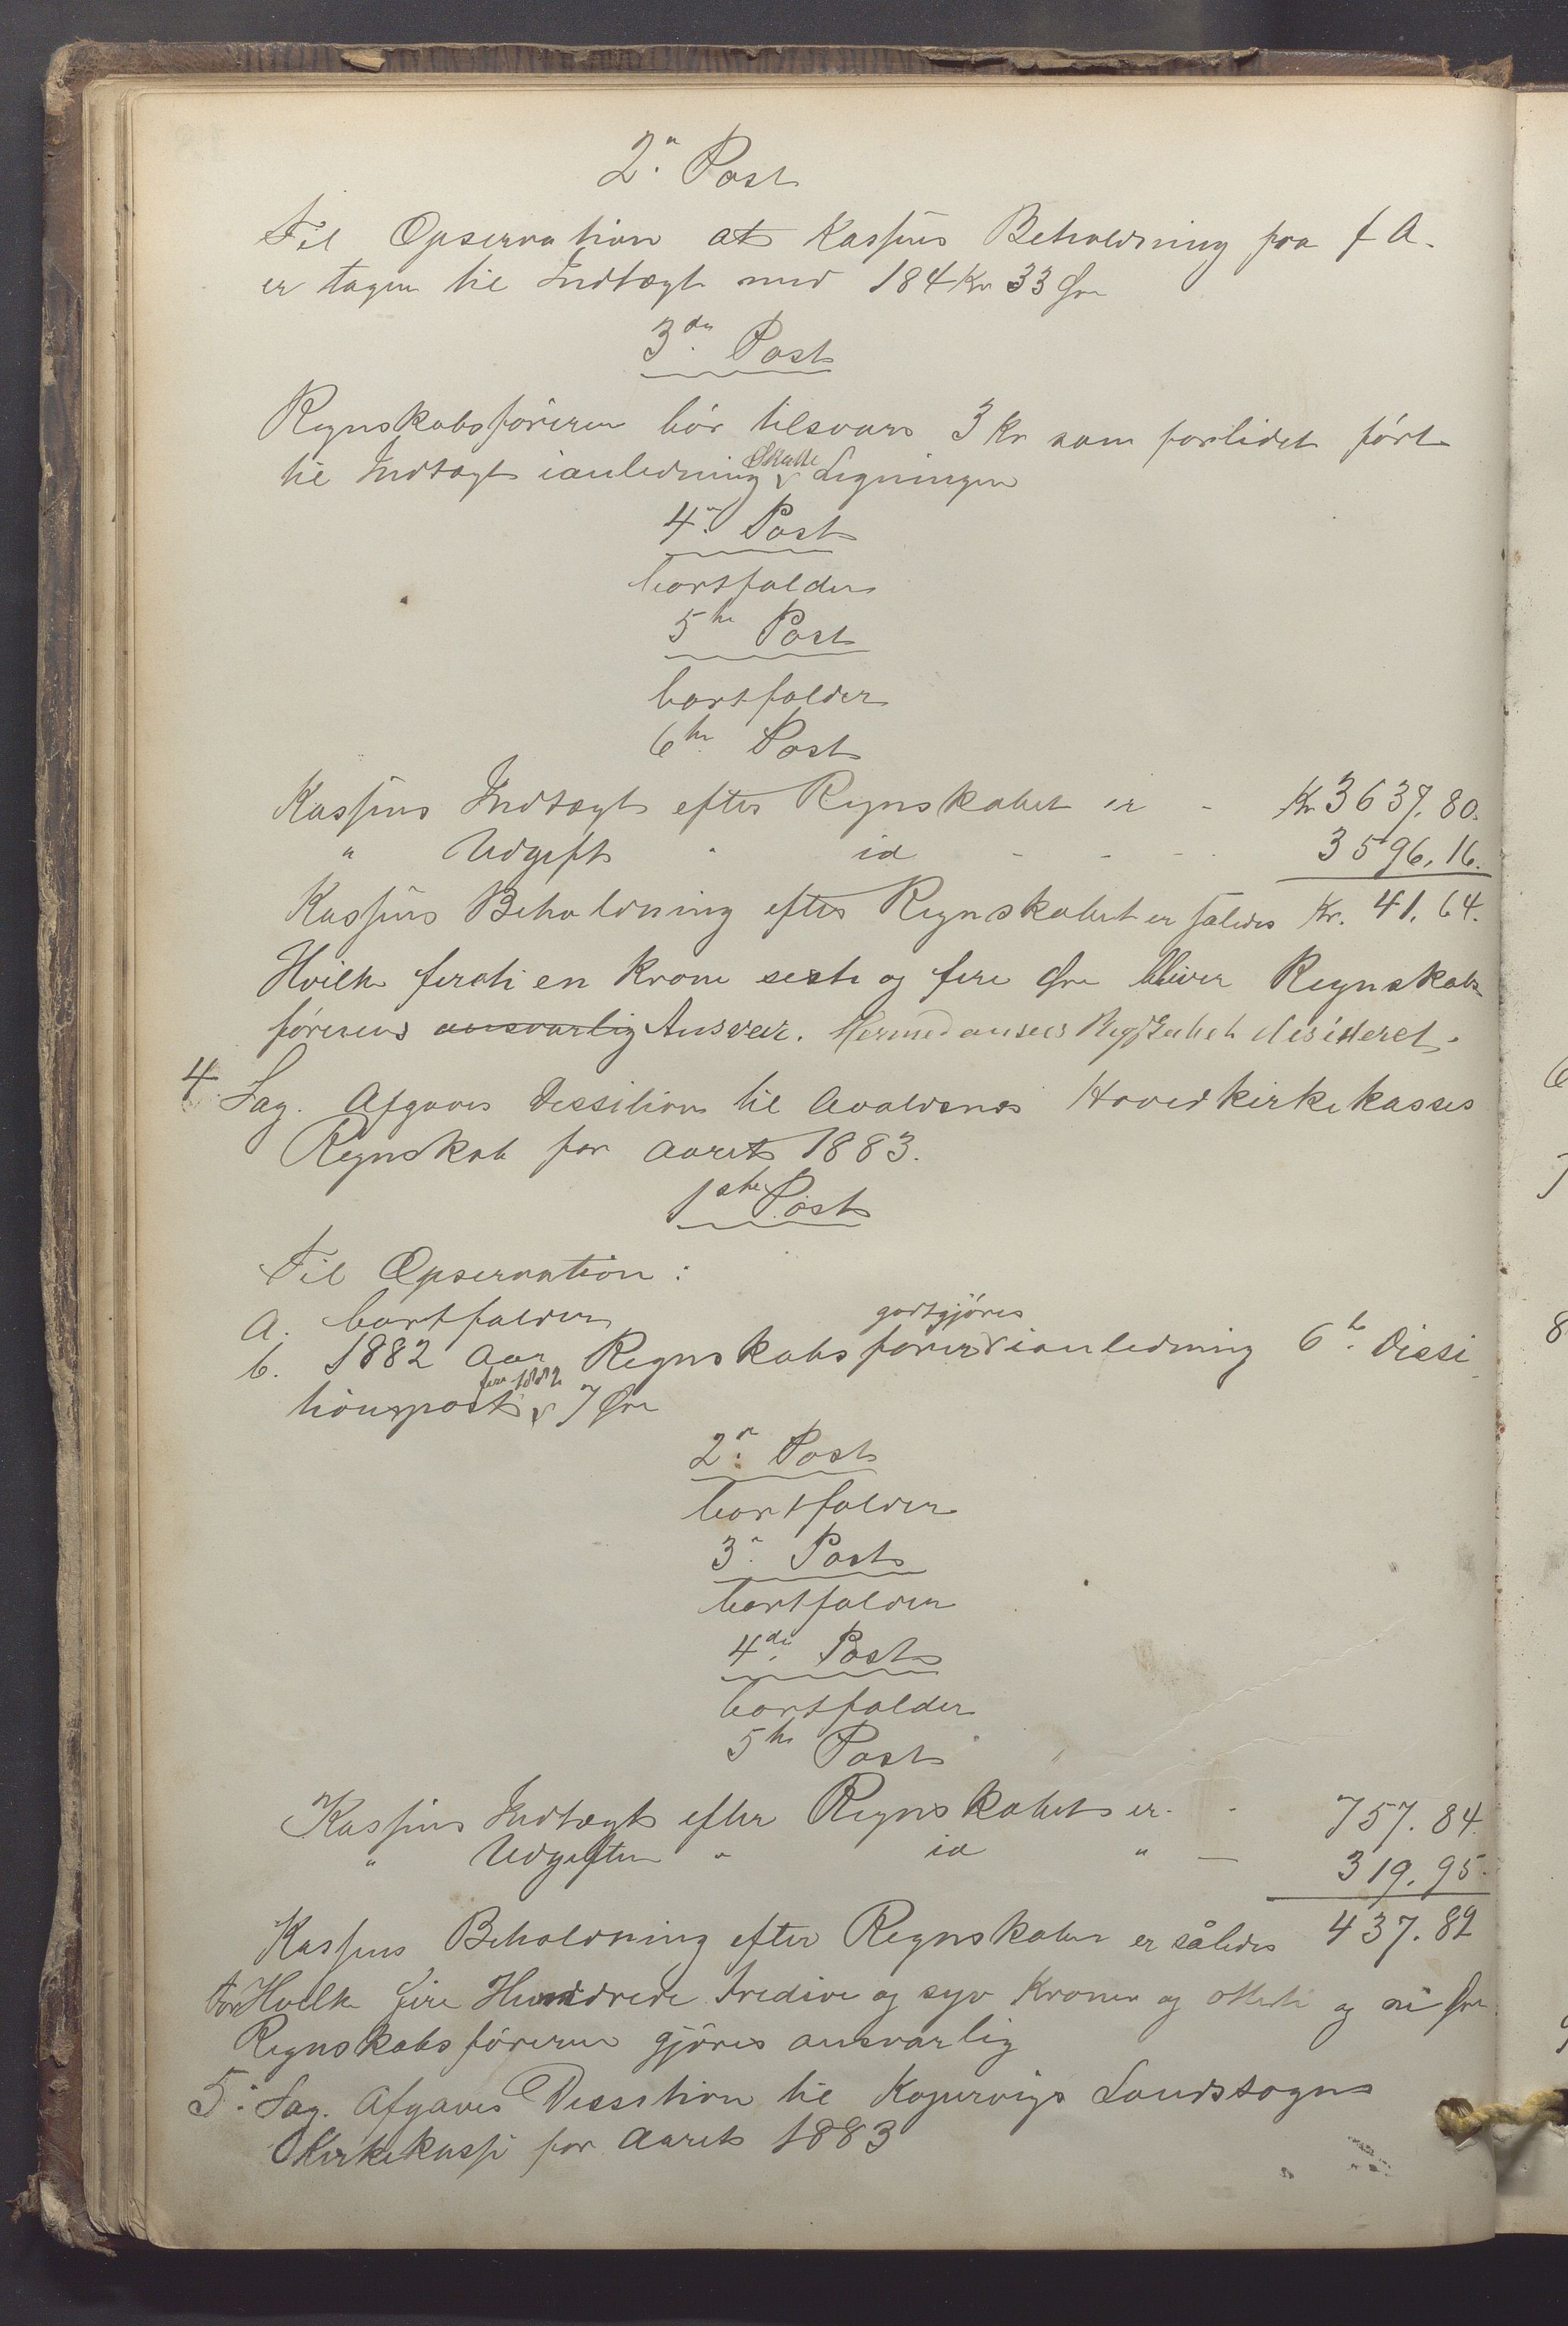 2n Post
Til Opservation at Kassens Beholdning fra f A.
er tagen til Indtægt med 184 Kr 33 Øre
3die Post
Regnskabsføreren bør tilsvare 3 Kr som forlidet ført
til Indtægt ianledning Skatte Ligningen
4n Post
bortfalder
5te Post
bortfalder
6te Post
Kassens Indtægt efter Regnskabet er - Kr 3637.80.
" Udgift " id - - - 3596.16.
Kassens Beholdning efter Regnskabet er saledes Kr. 41.64.
Hvilke firoti en Krone sesti og fire Øre bliver Regnskabs
førerens ansvarlig Ansvar. Hermed ansees Regnskabet desideret.
4 Sag. Afgaves Dessition til Avaldsnes Hovedkirkekasses
Regnskab for Aaret 1883.
1ste Post
Til Opservation:
a. bortfalder
godtgjøres
b. 1882 Aar Regnskabsfører ianledning 6te Dissi
tionspost for 1882 7 Øre
2n Post
bortfalder
3n Post
bortfalder
4de Post
bortfalder
5te Post
Kassens Indtægt efter Regnskabet er - 757.84.
" Udgiften " id " — 319.95.
Kassens Beholdning efter Regnskabet er således 437.89
for Hvilke fire Hundrede tredive og syv Kroner og otteti og ni Øre
Regnskabsføreren gjøres ansvarlig
5. Sag. Afgaves Dessition til Kopervigs Landsogns
Kirkekasse for Aaret 1883